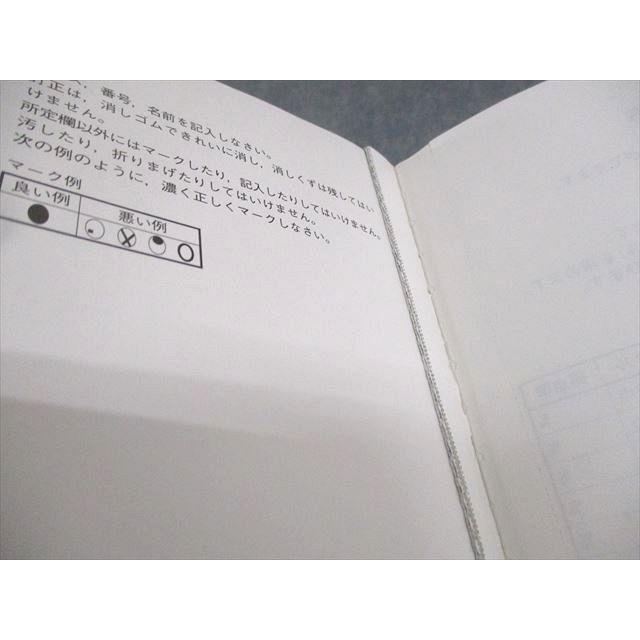 番号，名前を記入しなさい。
訂正は，消しゴムできれいに消し，消しくずは残してはい
けません。
所定欄以外にはマークしたり，記入したりしてはいけません。
汚したり，折りまげたりしてはいけません。
次の例のように，濃く正しくマークしなさい。
マーク例
良い例 悪い例